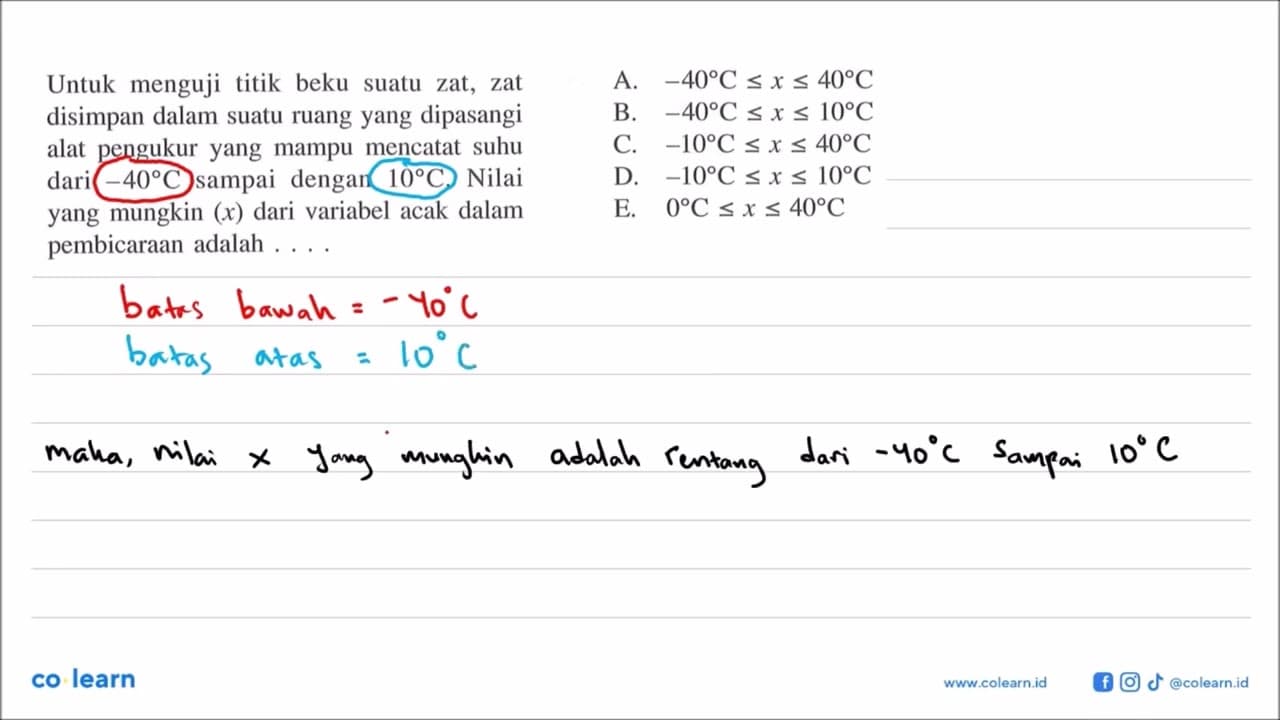 Untuk menguji titik beku suatu zat, zat
disimpan dalam suatu ruang yang dipasangi
alat pengukur yang mampu mencatat suhu
dari –40°C sampai dengan 10°C. Nilai
yang mungkin (x) dari variabel acak dalam
pembicaraan adalah . . . .
A. –40°C ≤ x ≤ 40°C
B. –40°C ≤ x ≤ 10°C
C. –10°C ≤ x ≤ 40°C
D. –10°C ≤ x ≤ 10°C
E. 0°C ≤ x ≤ 40°C
batas bawah = -40°C
batas atas = 10°C
maka, nilai x yang mungkin adalah rentang dari -40°C sampai 10°C
co learn
www.colearn.id
@colearn.id